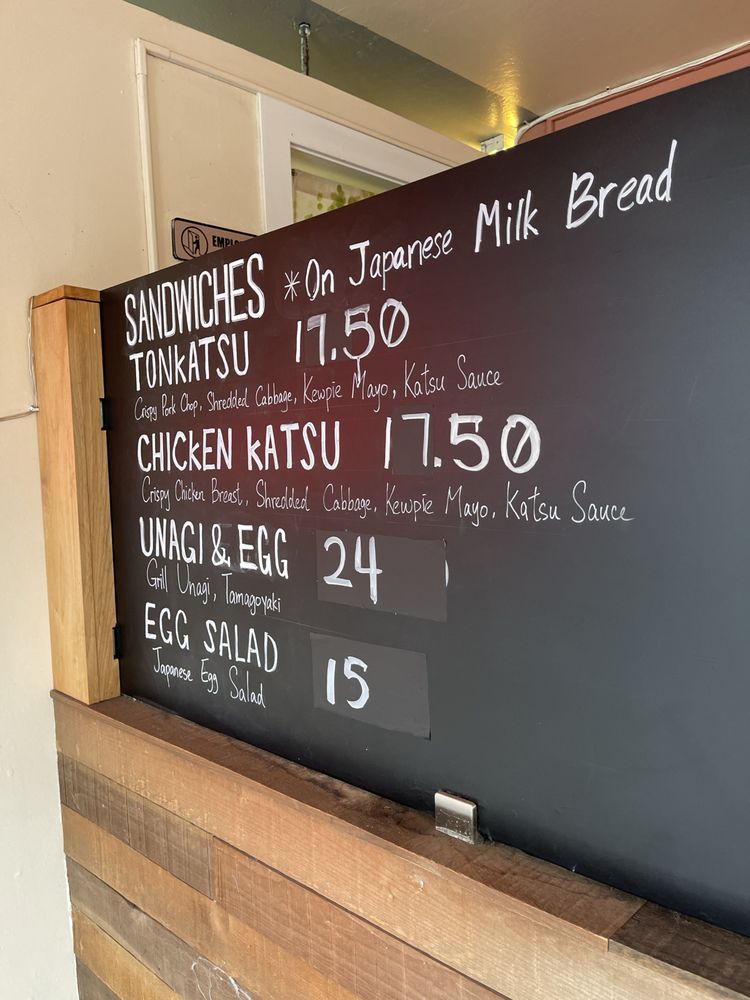 EMPLO
SANDWICHES *On Japanese Milk Bread
TONKATSU 17.50
Crispy Pork Chop, Shredded Cabbage, Kewpie Mayo, Katsu Sauce
CHICKEN KATSU 17.50
Crispy Chicken Breast, Shredded Cabbage, Kewpie Mayo, Katsu Sauce
UNAGI & EGG 24
Grill Unagi, Tamagoyaki
EGG SALAD 15
Japanese Egg Salad